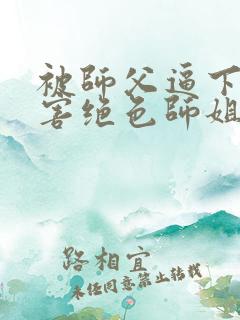 被師父逼下
害绝色師姐
路相宜
未经同意禁止转载